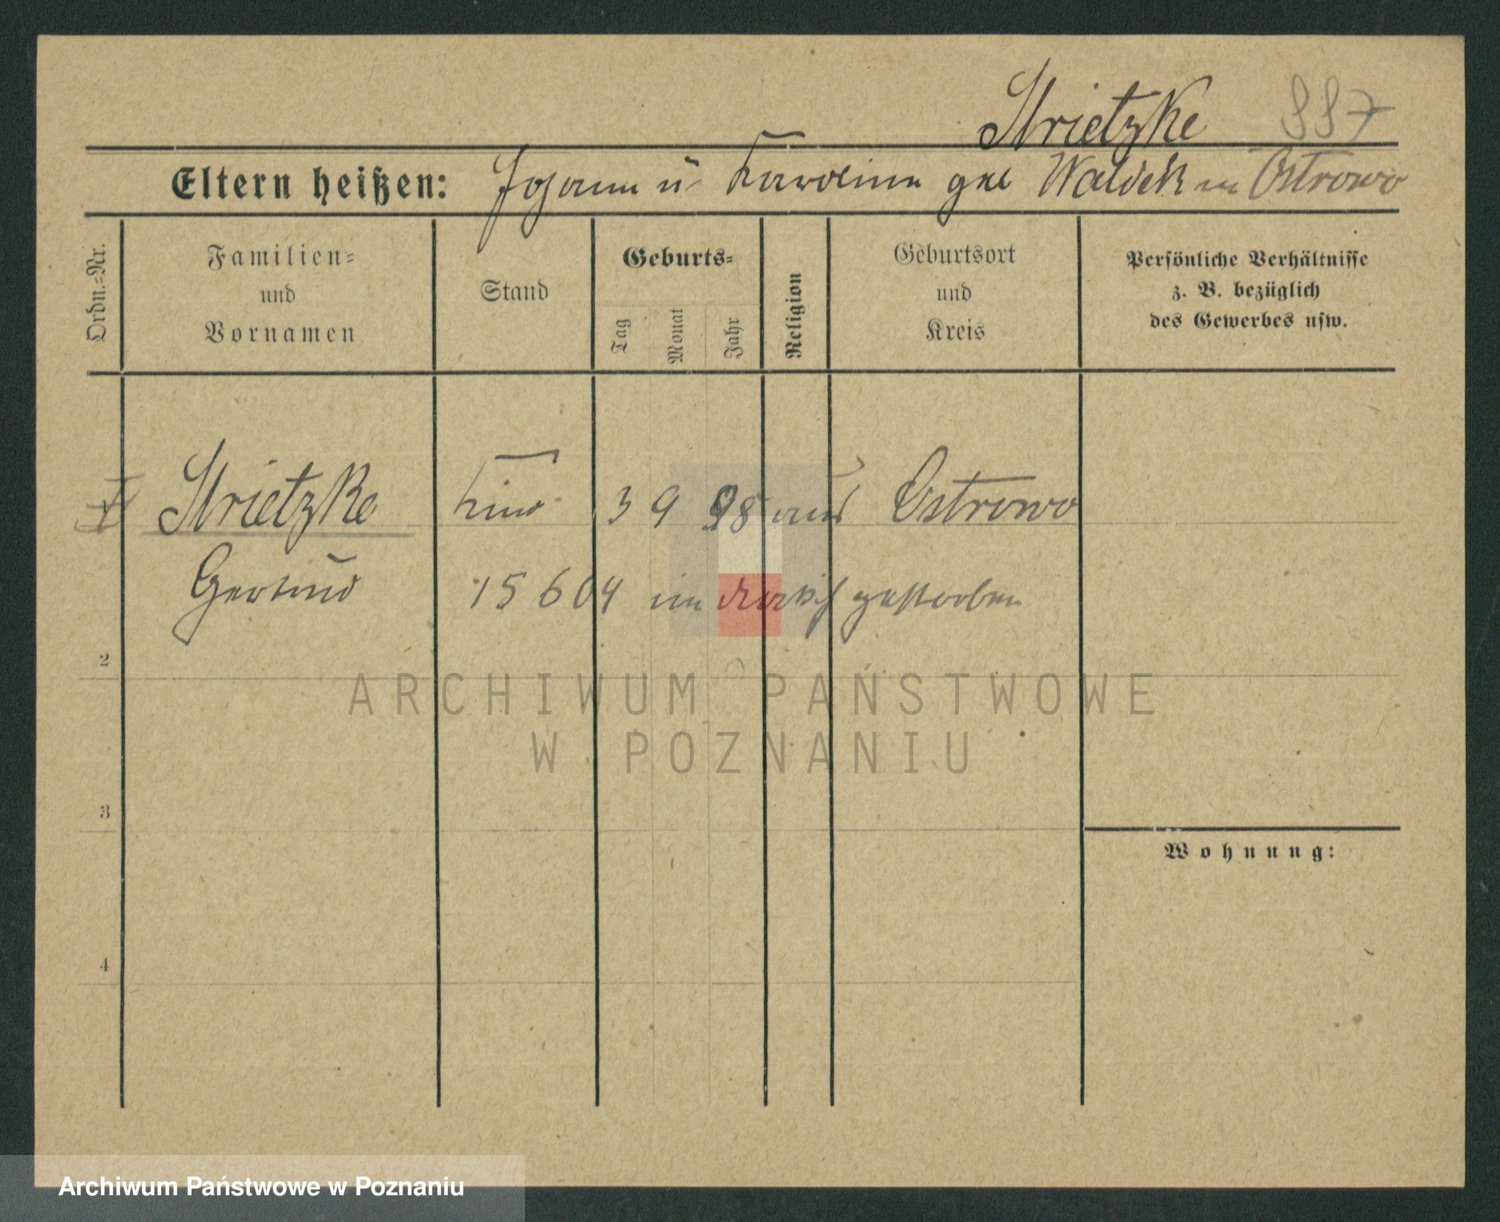 Strietzke 887
Eltern heißen: Johann u Karoline geb Waldek in Ostrowo
Ordn.-Nr.
Familien- und Vornamen
Stand
Geburts-
Tag
Monat
Jahr
Religion
Geburtsort und Kreis
Persönliche Verhältnisse
z. B. bezüglich
des Gewerbes usw.
Strietzke Kind 3 9 98 Ostrowo
Gertrud 15 6 04 im gestorben
2
3
4
Wohnung:
ARCHIWUM PAŃSTWOWE
W POZNANIU
Archiwum Państwowe w Poznaniu